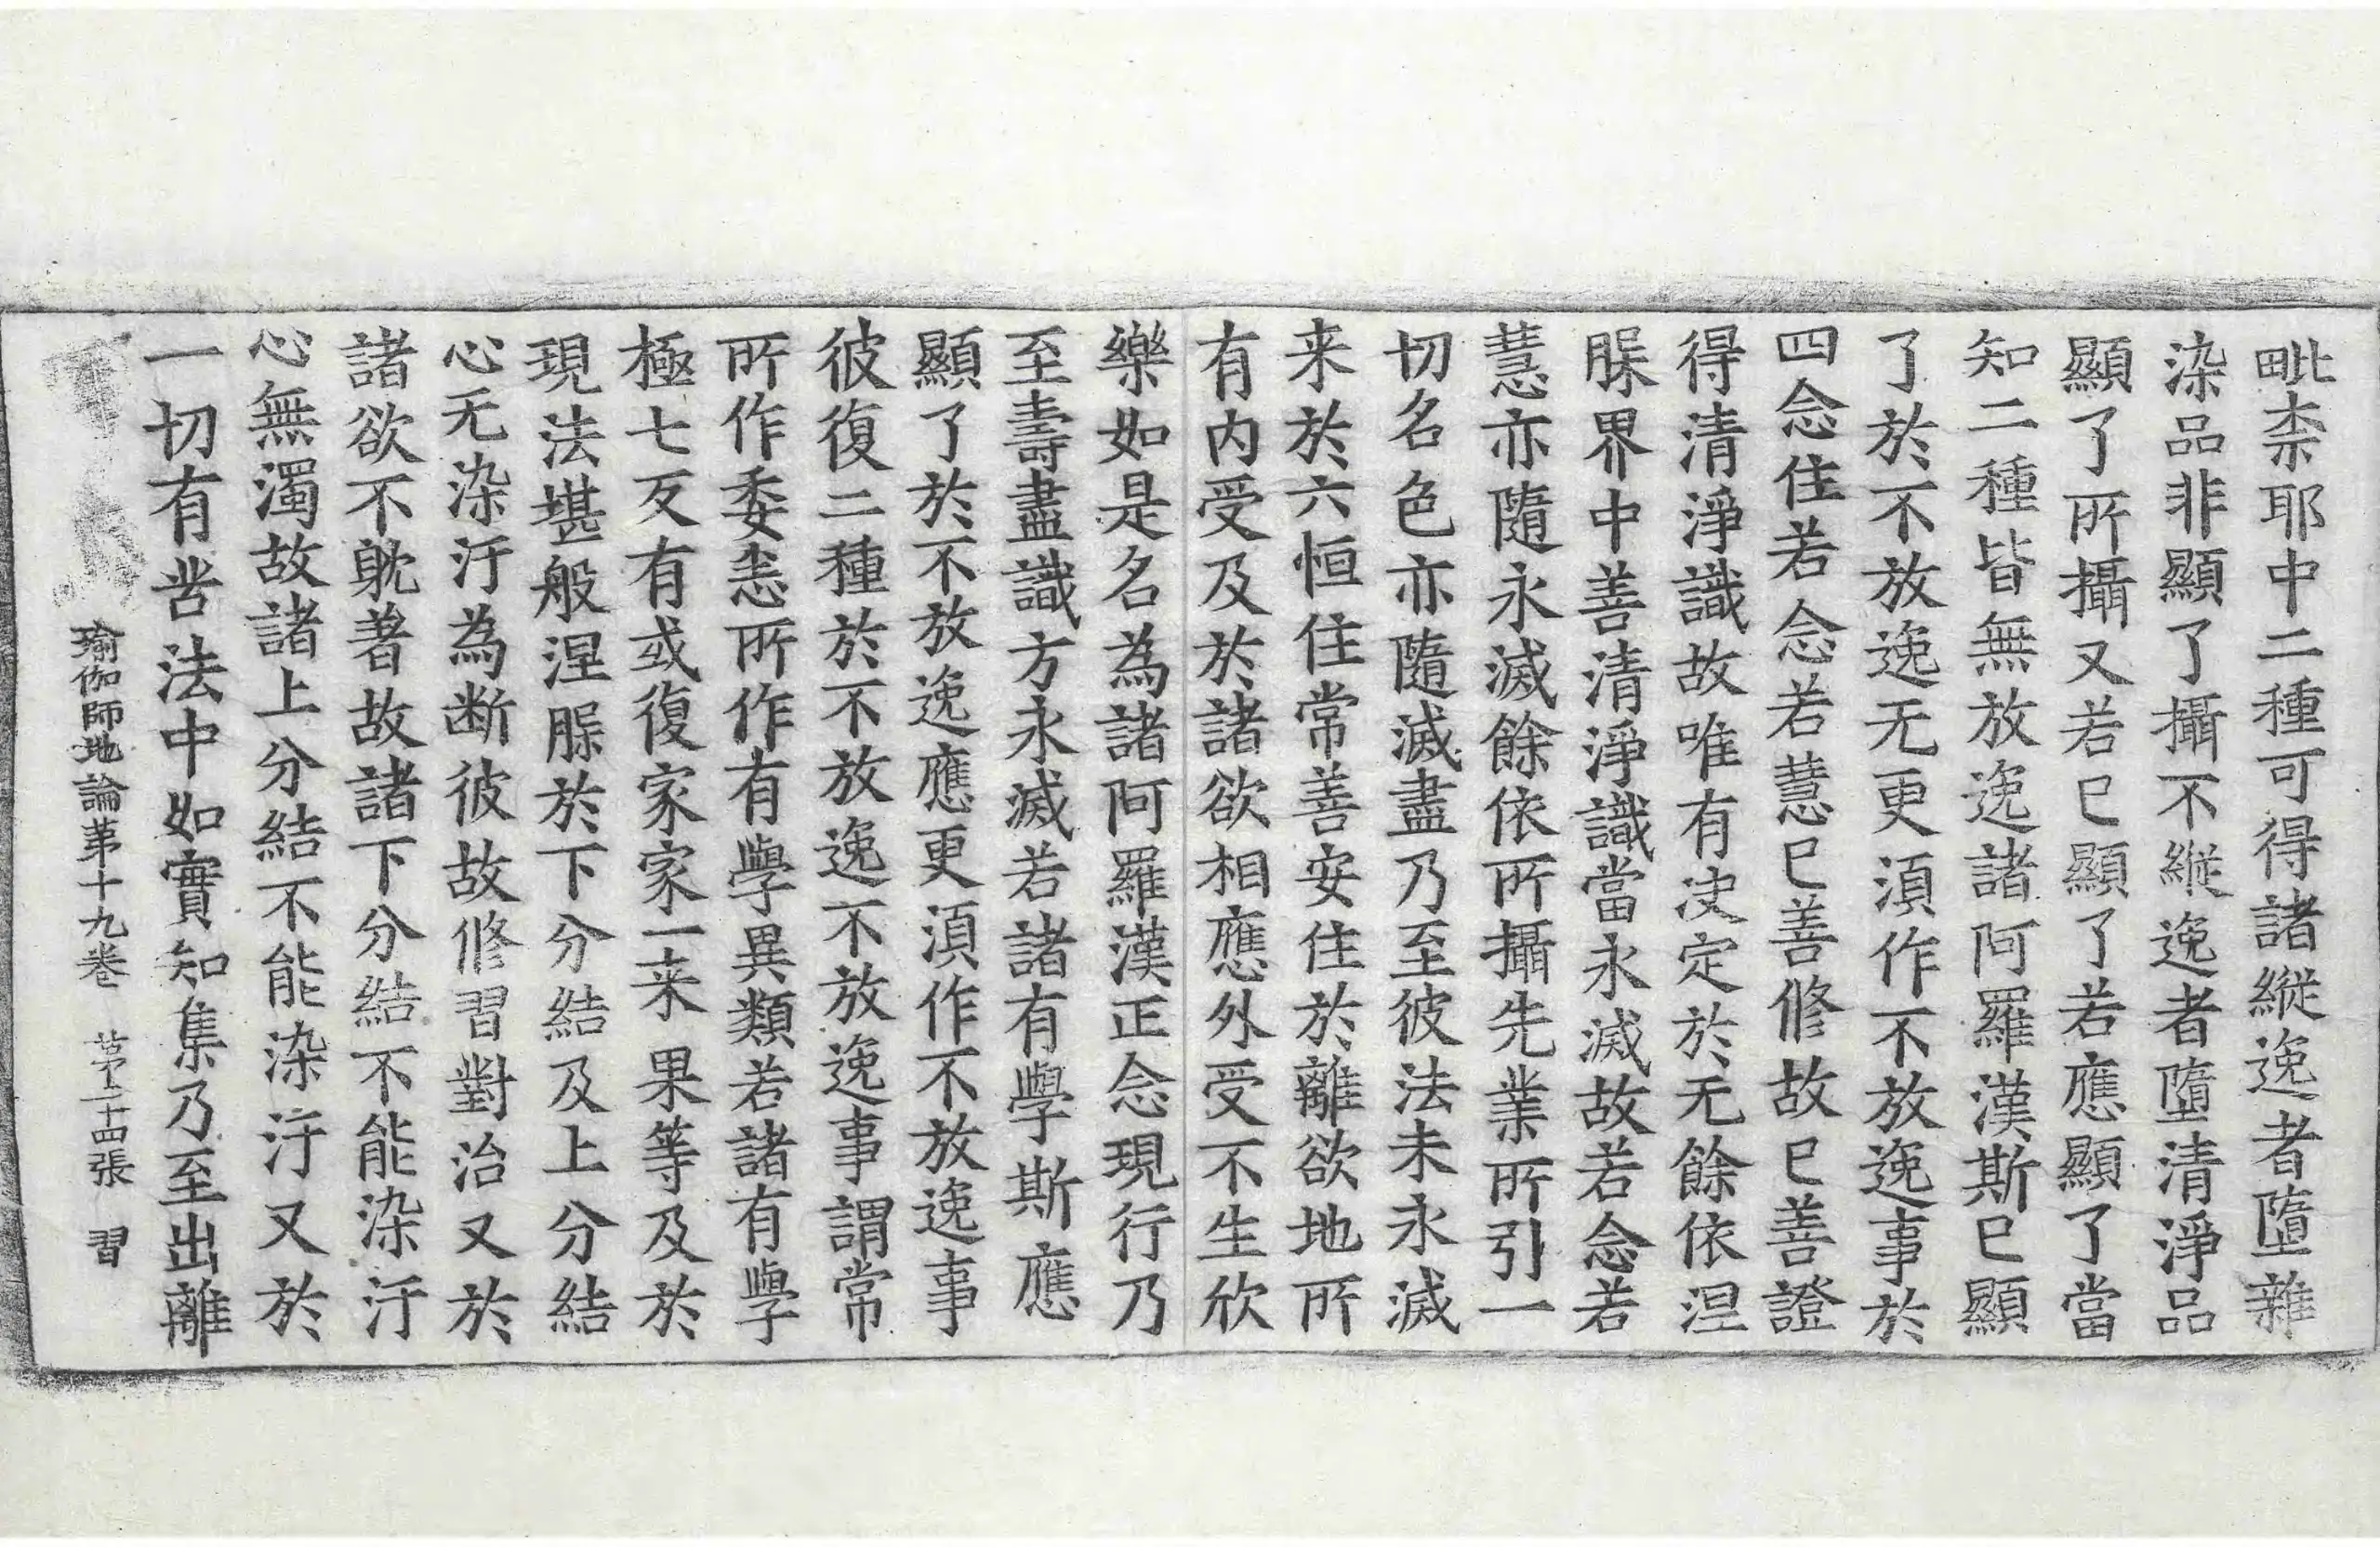 毗柰耶中二種可得諸縱逸者墮雜
染品非顯了攝不縱逸者墮清淨品
顯了所攝又若已顯了若應顯了當
知二種皆無放逸諸阿羅漢斯已顯
了於不放逸无更湏作不放逸事於
四念住若念若慧已善修故已善證
得清淨識故唯有決定於无餘依涅
縣界中善清淨識當永滅故若念若
慧亦隨永滅餘依所攝先業所引一
切名色亦隨滅盡乃至彼法未永滅
来於六恒住常善安住於離欲地所
有内受及於諸欲相應外受不生欣
樂如是名為諸阿羅漢正念現行乃
至壽盡識方永滅若諸有學斯應
顯了於不放逸應更湏作不放逸事
彼復二種於不放逸不放逸事謂常
所作委悉所作有學異類若諸有學
極七反有或復家家一来果等及於
現法堪般涅縣於下分結及上分結
心无染汙為断彼故修習對治又於
諸欲不躭著故諸下分結不能染汙
心無濁故諸上分結不能染汙又於
一切有苦法中如實知集乃至出離
瑜伽師地論苐十九卷 苐二十四張 習